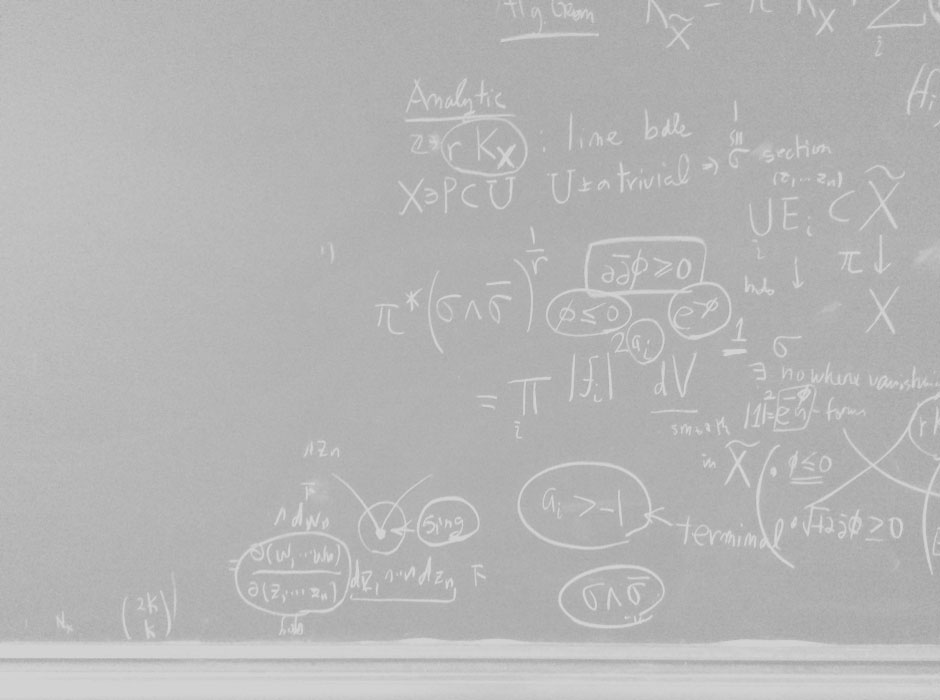 Alg Geom
K_X̃ = π* K_X + Σ_i
Analytic
r K_X : line bdle
X∋P⊂U U trivial ⇒ σ section
(z₁ ... z_n)
∪_i E_i ⊂ X̃
π ↓
X
π*(σ∧σ̄)^{1/r}
∂∂̄φ≥0
φ≤0 e^{-φ}
= ∏_i |f_i|^{2a_i} dV
smooth
1 σ
∃ nowhere vanishing
n-form
in X̃ (· φ≤0
· √-1∂∂̄φ≥0
a_i > -1
terminal
σ∧σ̄
∧z_n
∧dw_n
sing
= ∂(w₁ ... w_n)/∂(z₁ ... z_n) dz₁ ∧...∧ dz_n
(2k k)